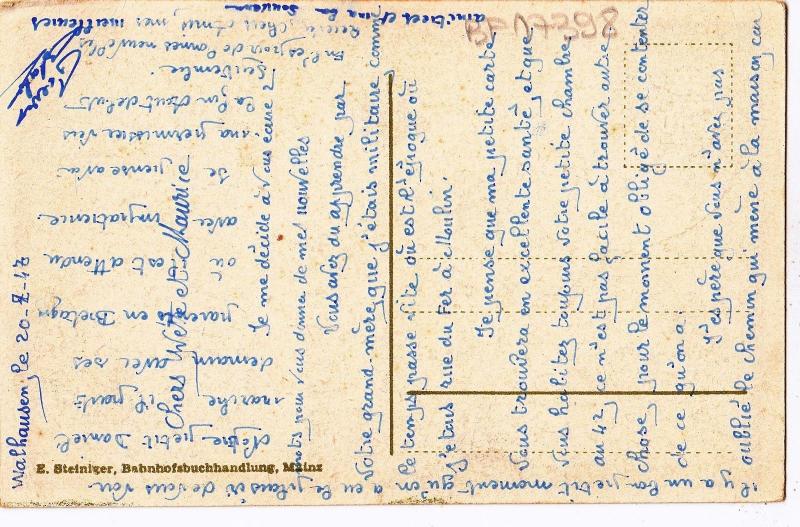 Malhausen le 20-8-47
Chers Yvette et Maurice
Je me décide à vous écrire 2
mots pour vous donner de mes nouvelles
Vous avez du apprendre par
Votre grand-mère, que j'étais militaire comme
le temps passe vite où est l'époque où
j'étais rue du Fer à Moulin.
Je pense que ma petite carte
vous trouvera en excellente santé, et que
vous habitez toujours votre petite chambre,
au 42, ce n'est pas facile à trouver autre
chose, pour le moment obligé de se contenter
de ce qu'on a.
J'espère que vous n'avez pas
oublié le chemin qui mène à la maison car
il y a un bon petit moment qu'on a eu le plaisir de vous voir.
Notre petit Daniel
marche il part
demain avec ses
parents en Bretagne
où est attendu
avec impatience
Je pense avoir
ma permission vers
la fin Août début
Septembre.
En l'espoir de bonnes nouvelles
Recevez chers amis, mes meilleures
amitiés et
souvenir
BF 17298
E. Steiniger, Bahnhofsbuchhandlung, Mainz